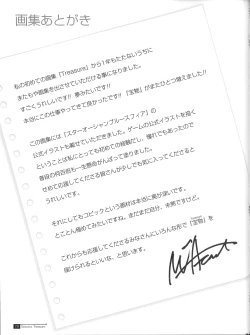 画集あとがき
私の初めての画集「Treasure」から1年もたたないうちに
またもや画集を出させていただける事になりました。
すごくうれしいです!! 夢みたいです!!
本当にこの仕事やってきて良かったです!! 「宝物」がまたひとつ増えました!!
この画集には「スターオーシャンブルースフィア」の
公式イラストも載せていただきました。ゲームの公式イラストを描く
ということは私にとっても初めての経験だし、憧れでもあったので
普段の何百倍も一生懸命がんばって塗りました。
せめて応援してくださる皆さんが少しでも気に入ってくださると
うれしいです。
それにしてもコピックという画材は本当に奥が深いです。
とことん極めてみたいですね。まだまだ自分、未熟ですけど。
これからも応援してくださるみなさんにいろんな形で「宝物」を
届けられるといいな、と思います。